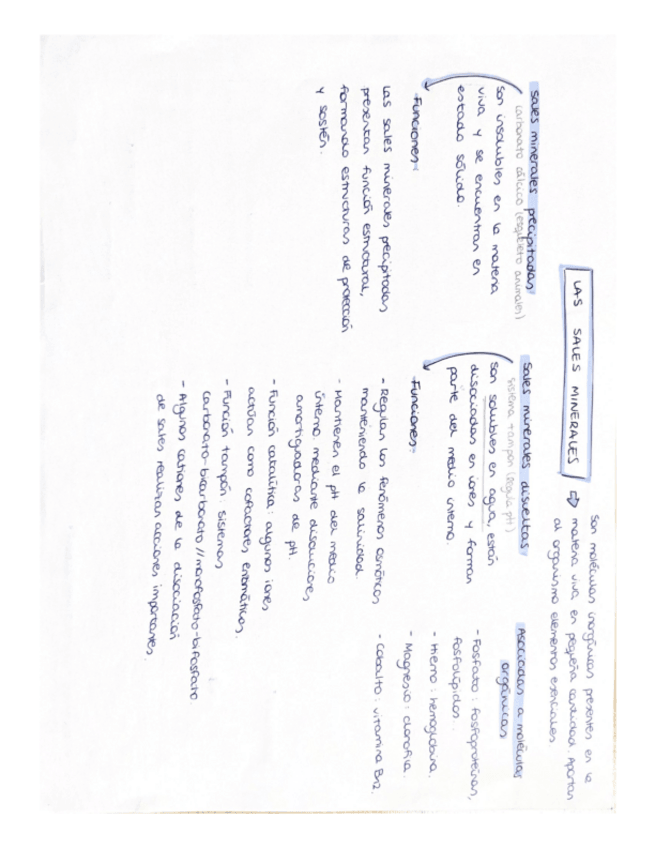 LAS SALES MINERALES ⇨ Son moléculas inorgánicas presentes en la
materia viva, en pequeña cantidad. Aportan
al organismo elementos esenciales.
Sales minerales precipitadas
carbonato cálcico (esqueleto animales)
son insolubles en la materia
viva y se encuentran en
estado sólido.
Funciones
Las sales minerales precipitadas
presentan función estructural,
formando estructuras de protección
y sostén.
Sales minerales disueltas
sistema tampón (regula pH)
son solubles en agua, están
disociadas en iones y forman
parte del medio interno.
Funciones
- Regulan los fenómenos osmóticos
manteniendo la salinidad.
- Mantienen el pH del medio
interno, mediante disoluciones
amortiguadoras de pH.
- Función catalítica: algunos iones
actúan como cofactores enzimáticos.
- Función tampón: sistemas
carbonato-bicarbonato // monofosfato-bifosfato.
- Algunos cationes de la disociación
de sales realizan acciones importantes.
Asociadas a moléculas
orgánicas
- Fosfato: fosfoproteínas,
fosfolípidos...
- Hierro: hemoglobina.
- Magnesio: clorofila.
- Cobalto: vitamina B12.